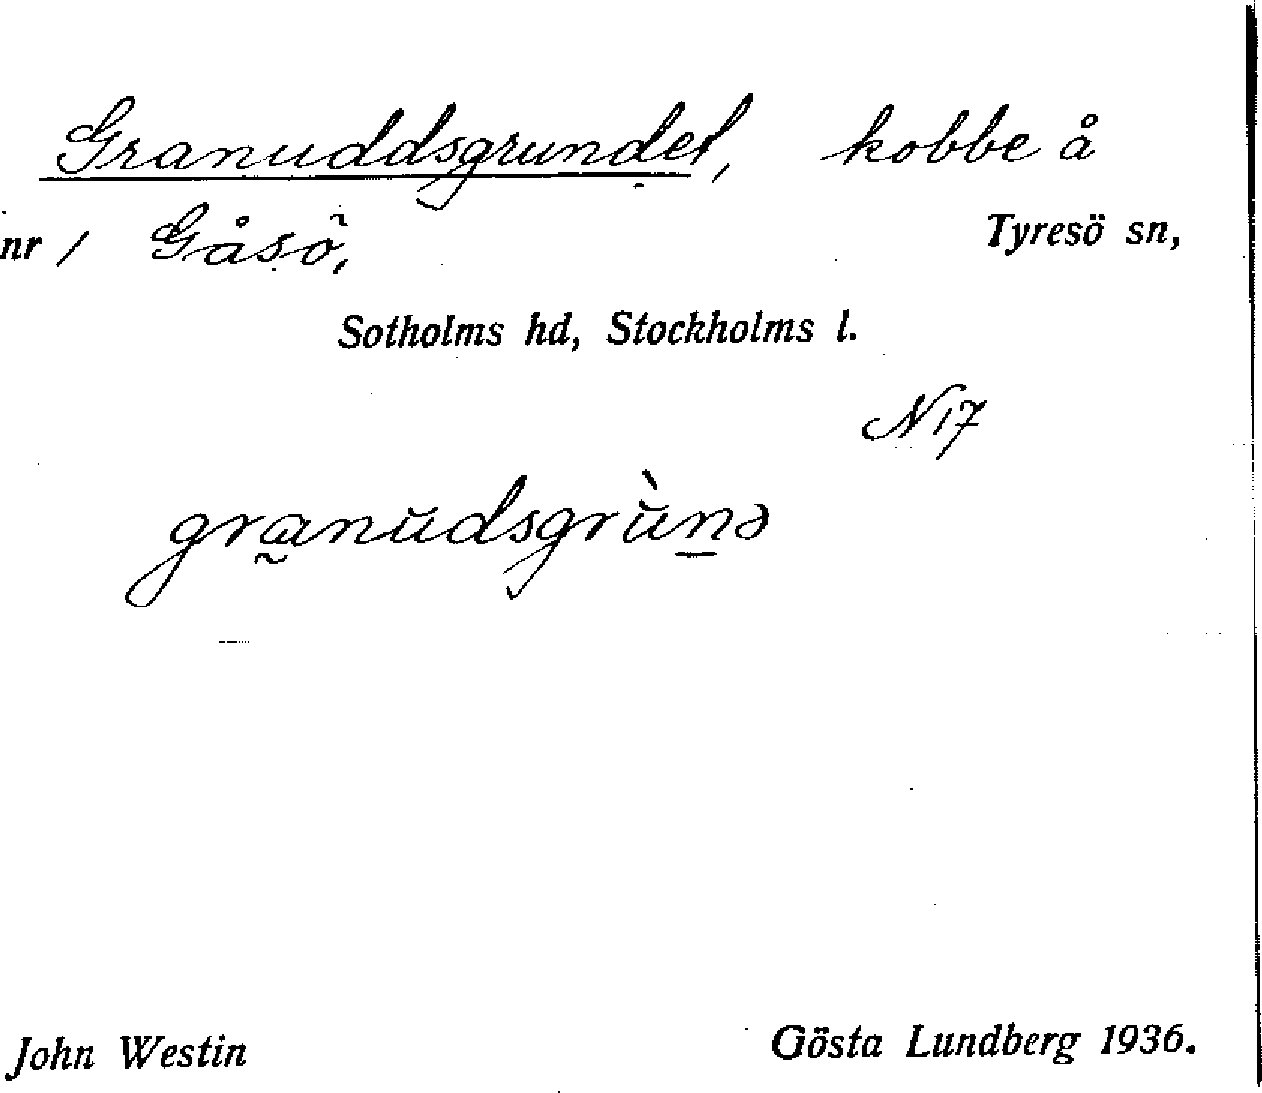 Granuddsgrundet, kobbe å
nr 1 Gåsö, Tyresö sn,
Sotholms hd, Stockholms l.
N17
granŭdsgrŭ̀nə
John Westin Gösta Lundberg 1936.